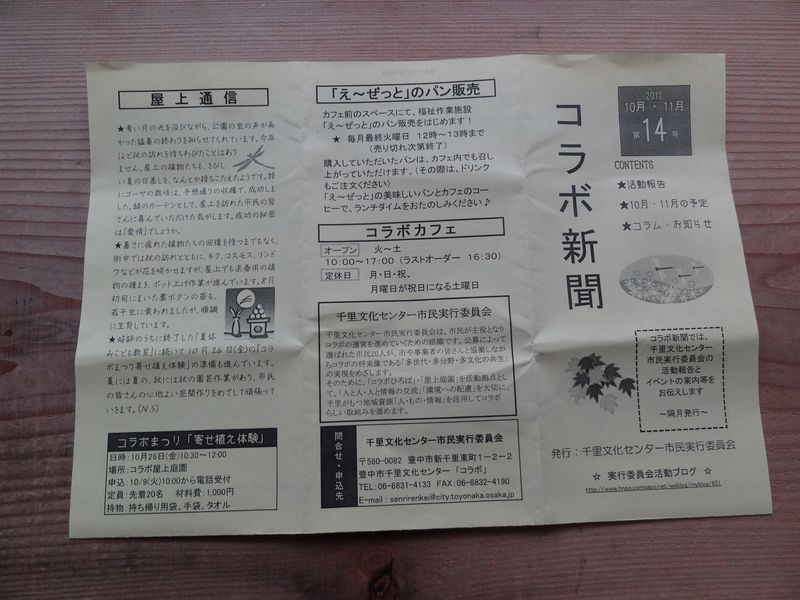 屋上通信
★青い月の光を浴びながら、公園の虫の声が長
かった猛暑の終わりを知らせてくれています。今年
ほど秋の訪れを待ちわびたことはあり
ません。屋上の植物たちも、きびし
い夏の日差しを、なんとか持ちこたえたようです。特
にゴーヤの栽培は、予想通りの収穫で、成功しま
した。緑のカーテンとして、屋上を訪れた市民の皆
さんに喜んでいただけた気がします。成功の秘密
は「愛情」でしょうか。
★暑さに疲れた植物たちの回復を待つまでもなく、
街中では秋の訪れとともに、キク、コスモス、リンド
ウなどが花を咲かせますが、屋上でも来春用の植
物の種まき、ポット上げ作業が進んでいます。8月
初旬にまいた葉ボタンの苗も、
若干虫に食われましたが、順調
に生育しています。
★好評のうちに終了した「夏休
みこども教室」に続いて10月26日(金)の「コラ
ボまつり寄せ植え体験」の準備も進んでいます。
夏には夏の、秋には秋の園芸作業があり、市民
の皆さんの心地よい空間作りをめざして頑張って
いきます。(N.S)
コラボまつり「寄せ植え体験」
日時:10月26日(金)10:30~12:00
場所:コラボ屋上庭園
申込:10/9(火)10:00から電話受付
定員:先着20名 材料費:1,000円
持物:持ち帰り用袋、手袋、タオル
「え~ぜっと」のパン販売
カフェ前のスペースにて、福祉作業施設
「え~ぜっと」のパン販売をはじめます!
★ 毎月最終火曜日 12時~13時まで
(売り切れ次第終了)
購入していただいたパンは、カフェ内でも召し
上がっていただけます。(その際は、ドリンク
もご注文ください)
「え~ぜっと」の美味しいパンとカフェのコー
ヒーで、ランチタイムをおたのしみください♪
コラボカフェ
オープン 火~土
10:00~17:00 (ラストオーダー 16:30)
定休日 月・日・祝、
月曜日が祝日になる土曜日
千里文化センター市民実行委員会
千里文化センター市民実行委員会は、市民が主役となり
コラボの運営を進めていくための組織です。公募によって
選ばれた市民20人が、市や事業者の皆さんと協働しなが
らコラボの将来像である「多世代・多分野・多文化の共生」
の実現をめざします。
そのために、「コラボひろば」・「屋上庭園」を活動拠点とし
て、「人と人・人と情報の交流」「環境への配慮」を大切に、
千里がもつ地域資源「人・もの・情報」を活用してコラボ
らしい取組みを進めます。
問合せ・申込先
千里文化センター市民実行委員会
〒560-0082 豊中市新千里東町1-2-2
豊中市千里文化センター「コラボ」
TEL:06-6831-4133 FAX:06-6832-4190
E-mail:senrirenkei@city.toyonaka.osaka.jp
コラボ新聞
2012
10月・11月
第14号
CONTENTS
★活動報告
★10月・11月の予定
★コラム・お知らせ
コラボ新聞では、
千里文化センター
市民実行委員会の
活動報告と
イベントの案内等を
お伝えします
~隔月発行~
発行:千里文化センター市民実行委員会
☆ 実行委員会活動ブログ ☆
http://www.hnpo.comsapo.net/weblog/myblog/651